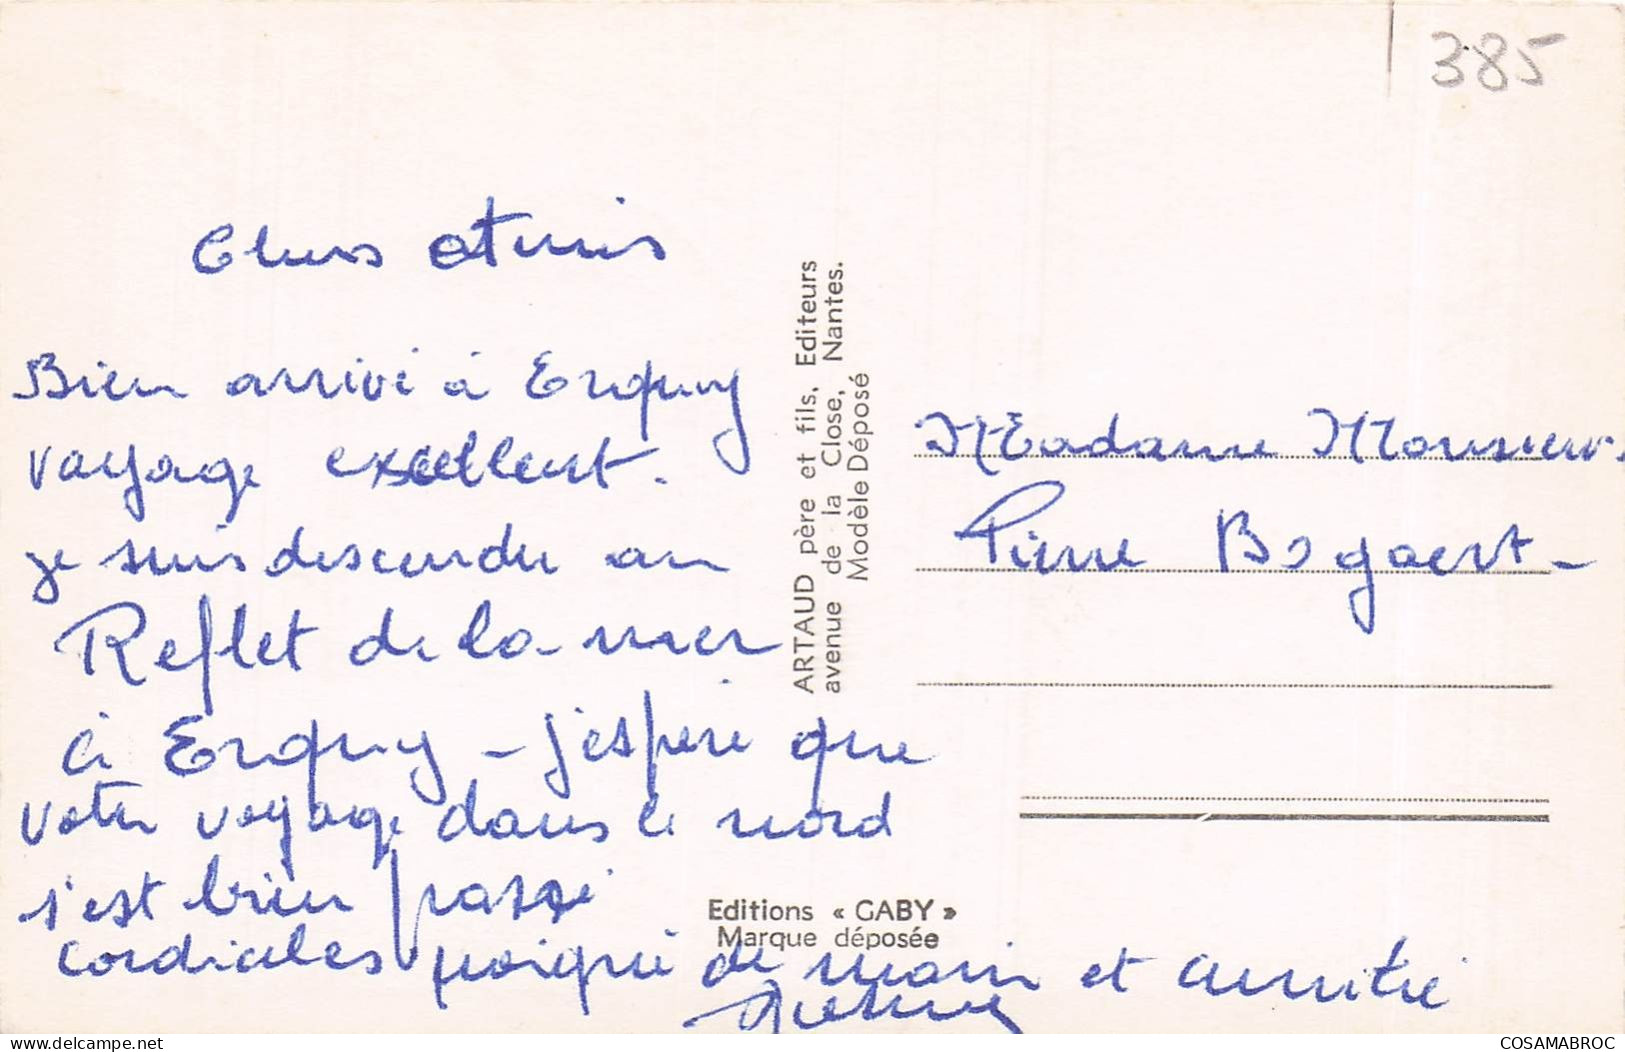 385
Chers amis
Bien arrivé à Erquy
voyage excellent.
je suis descendu au
Reflet de la mer
à Erquy - j'espère que
votre voyage dans le nord
s'est bien passé
cordiales poigné de main et amitié
Madame Monsieur
Pierre Bogaert -
ARTAUD père et fils, Editeurs
avenue de la Close, Nantes.
Modèle Déposé
Editions « GABY »
Marque déposée
COSAMABROC